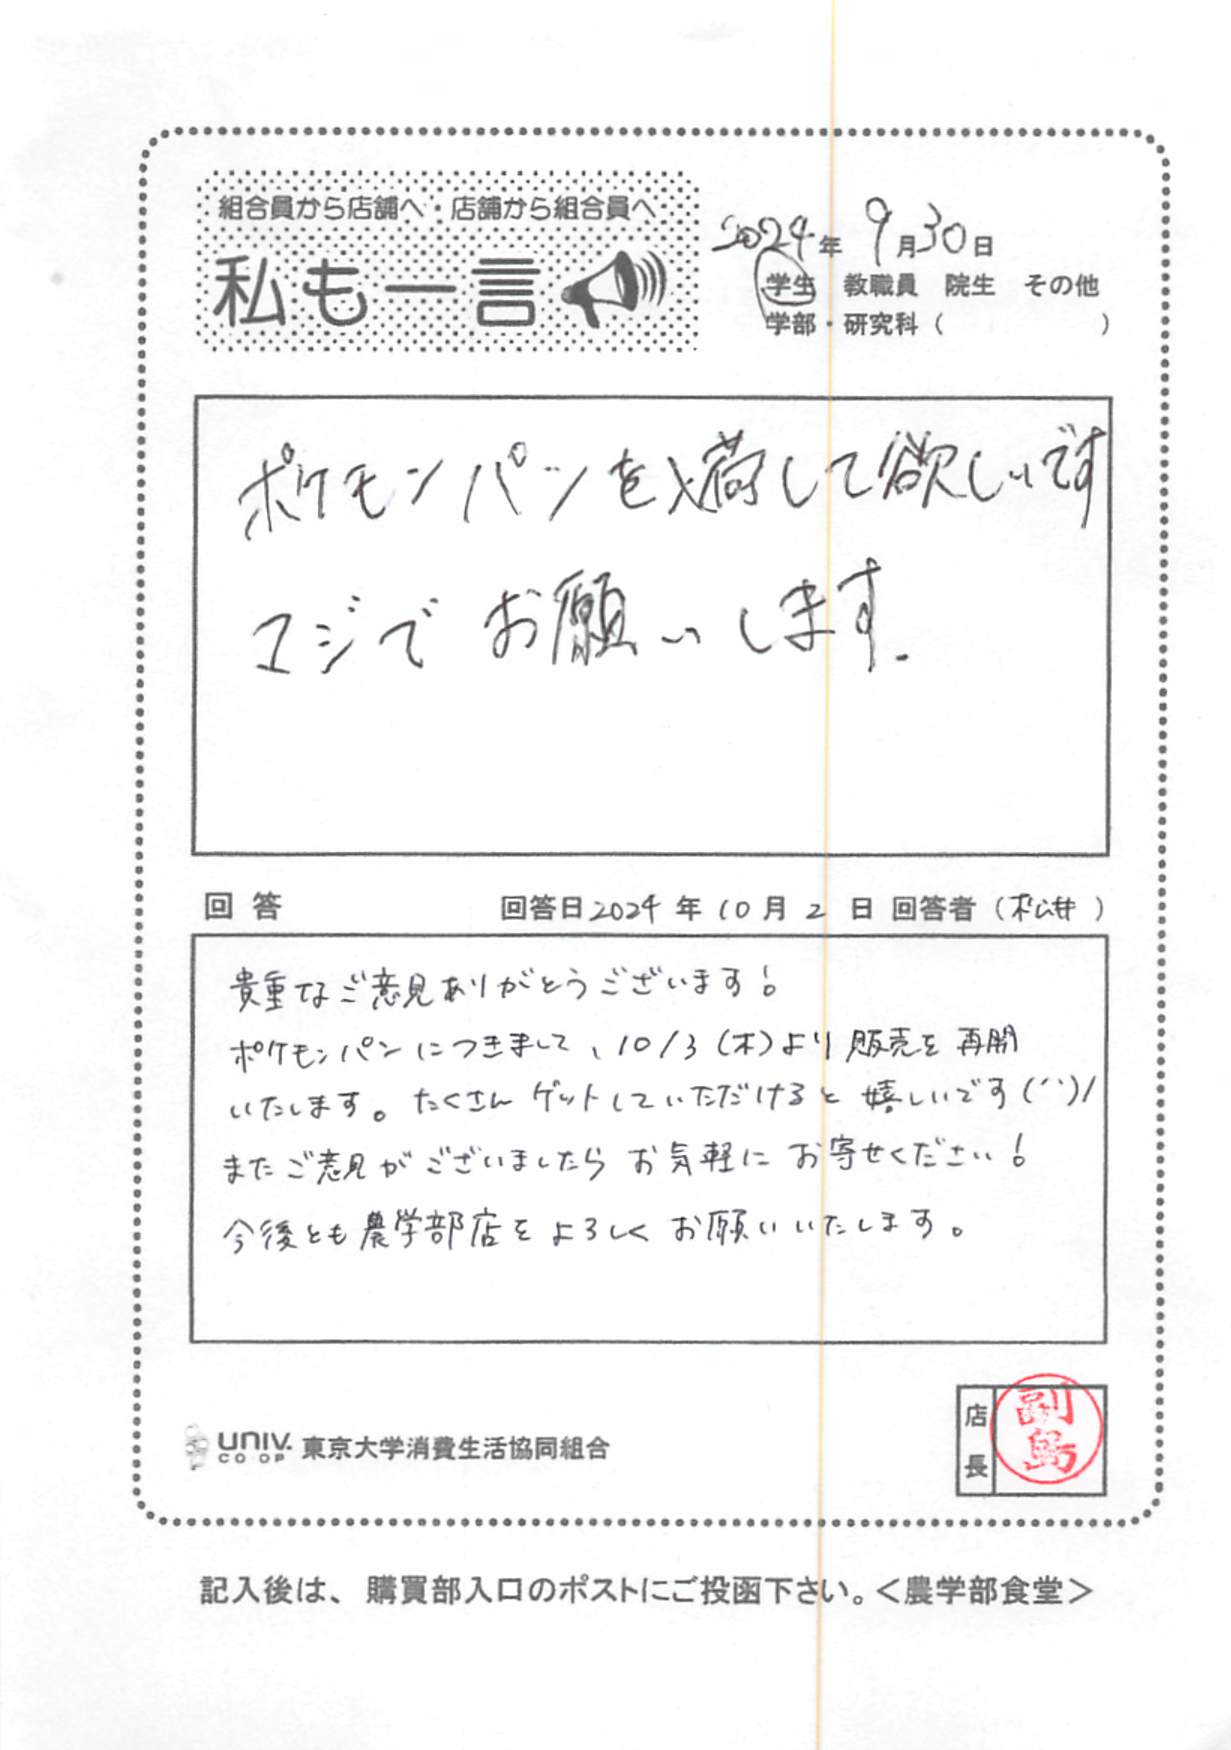 組合員から店舗へ・店舗から組合員へ
私も一言
2024年 9月30日
学生 教職員 院生 その他
学部・研究科（ ）
ポケモンパンを入荷して欲しいです
マジでお願いします.
回答 回答日2024年10月2日 回答者（松井）
貴重なご意見ありがとうございます！
ポケモンパンにつきまして、10/3（木）より販売を再開
いたします。たくさんゲットしていただけると嬉しいです(^^)/
またご意見がございましたらお気軽にお寄せください！
今後とも農学部店をよろしくお願いいたします。
UNIV. CO-OP 東京大学消費生活協同組合
店長 副島
記入後は、購買部入口のポストにご投函下さい。＜農学部食堂＞